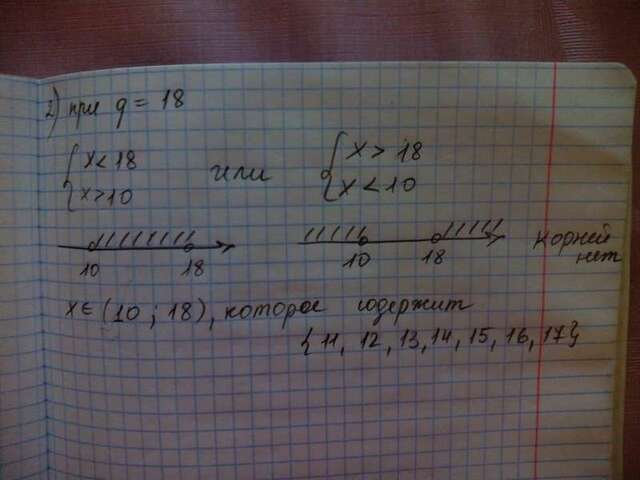 2) при q = 18
{ x < 18 или { x > 18
x > 10 x < 10
10 18 10 18 корней нет
x ∈ (10 ; 18), которое содержит
{ 11, 12, 13, 14, 15, 16, 17 }